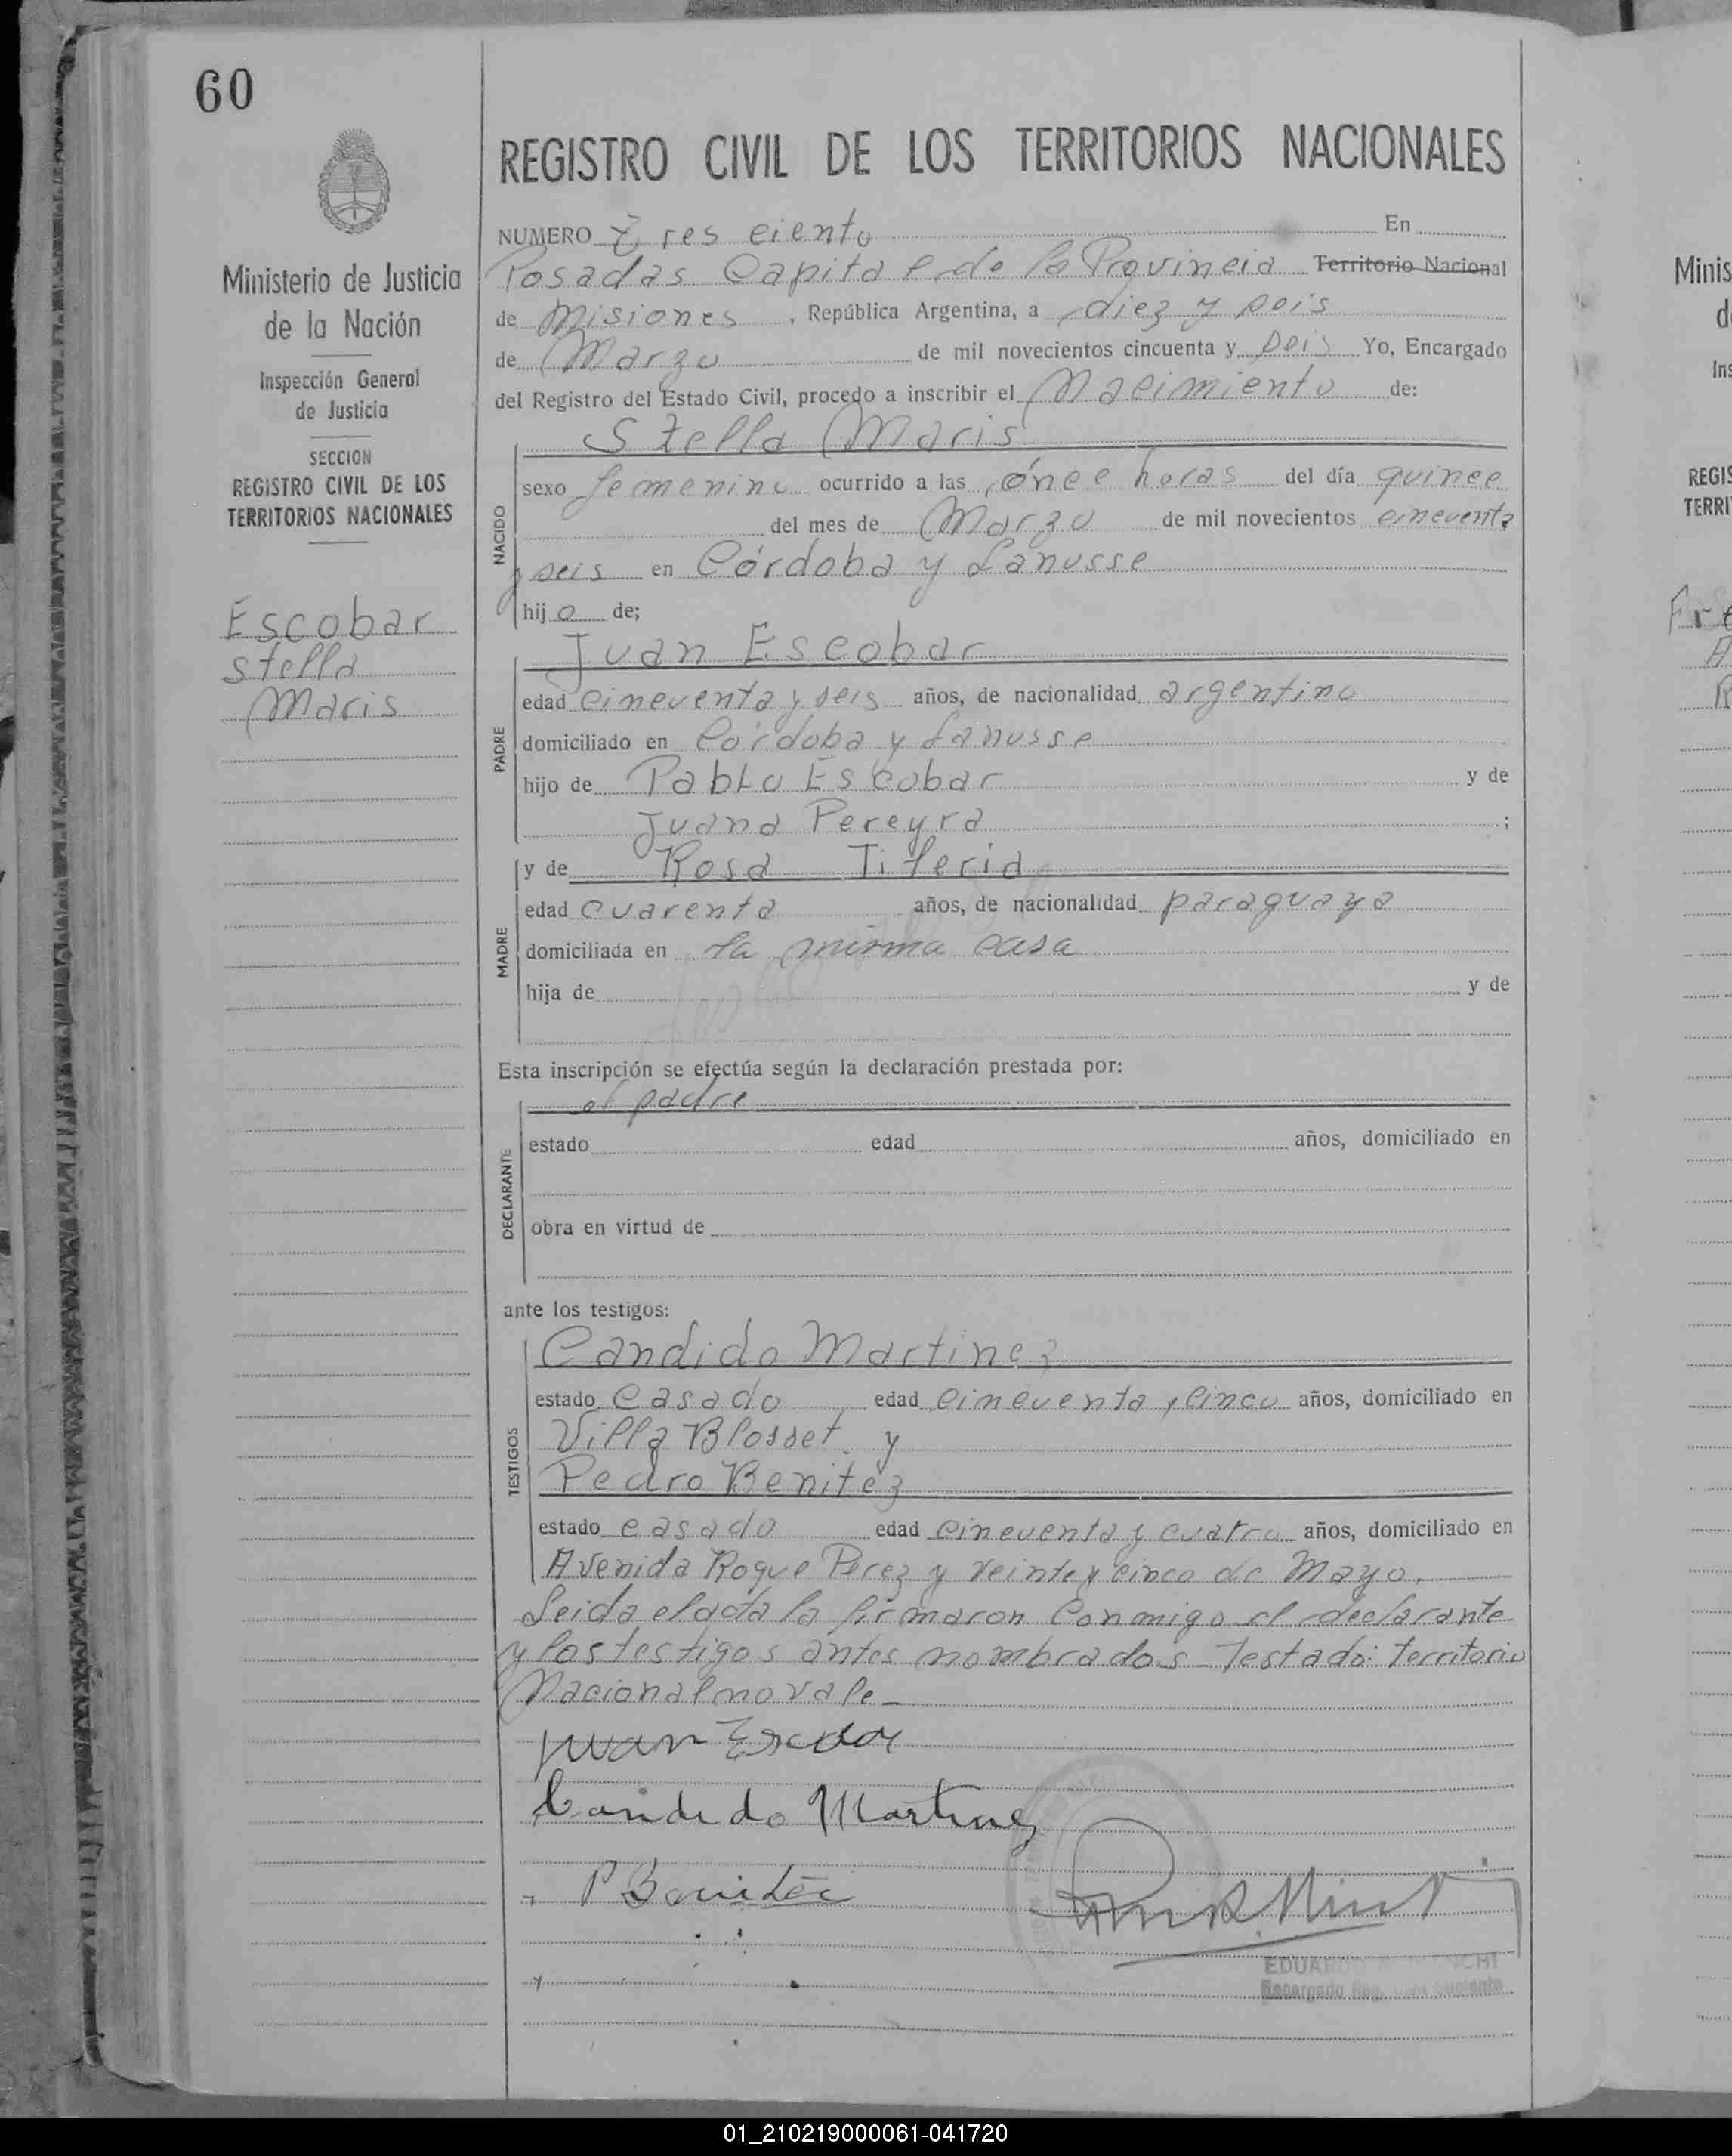 60
REGISTRO CIVIL DE LOS TERRITORIOS NACIONALES
Ministerio de Justicia
de la Nación
Inspección General
de Justicia
SECCION
REGISTRO CIVIL DE LOS
TERRITORIOS NACIONALES
Escobar
Stella
Maris
NUMERO Tres ciento En
Posadas Capital de la Provincia Territorio Nacional
de Misiones, República Argentina, a diez y seis
de Marzo de mil novecientos cincuenta y seis Yo, Encargado
del Registro del Estado Civil, procedo a inscribir el Nacimiento de:
Stella Maris
NACIDO
sexo femenino ocurrido a las ónce horas del día quince
del mes de Marzo de mil novecientos cincuenta
y seis en Córdoba y Lanusse
hija de;
Juan Escobar
PADRE
edad cincuenta y seis años, de nacionalidad argentino
domiciliado en Córdoba y Lanusse
hijo de Pablo Escobar y de
Juana Pereyra ;
y de Rosa Tileria
MADRE
edad cuarenta años, de nacionalidad paraguaya
domiciliada en la misma casa
hija de y de
Esta inscripción se efectúa según la declaración prestada por:
el padre
DECLARANTE
estado edad años, domiciliado en
obra en virtud de
ante los testigos:
Candido Martinez
TESTIGOS
estado casado edad cincuenta y cinco años, domiciliado en
Villa Blosset y
Pedro Benitez
estado casado edad cincuenta y cuatro años, domiciliado en
Avenida Roque Perez y veinte y cinco de Mayo.
Leida el acta la firmaron conmigo el declarante
y los testigos antes nombrados - Testado: Territorio
Nacional no vale -
Juan Escobar
Candido Martinez
P Benitez
EDUA
Encargado Reg.
Minis
d
Ins
REGIS
TERRI
Fre
A
R
01_210219000061-041720